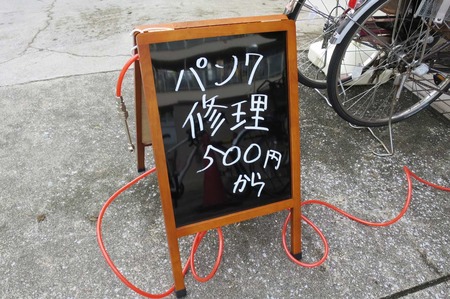 パンク
修理
500円
から